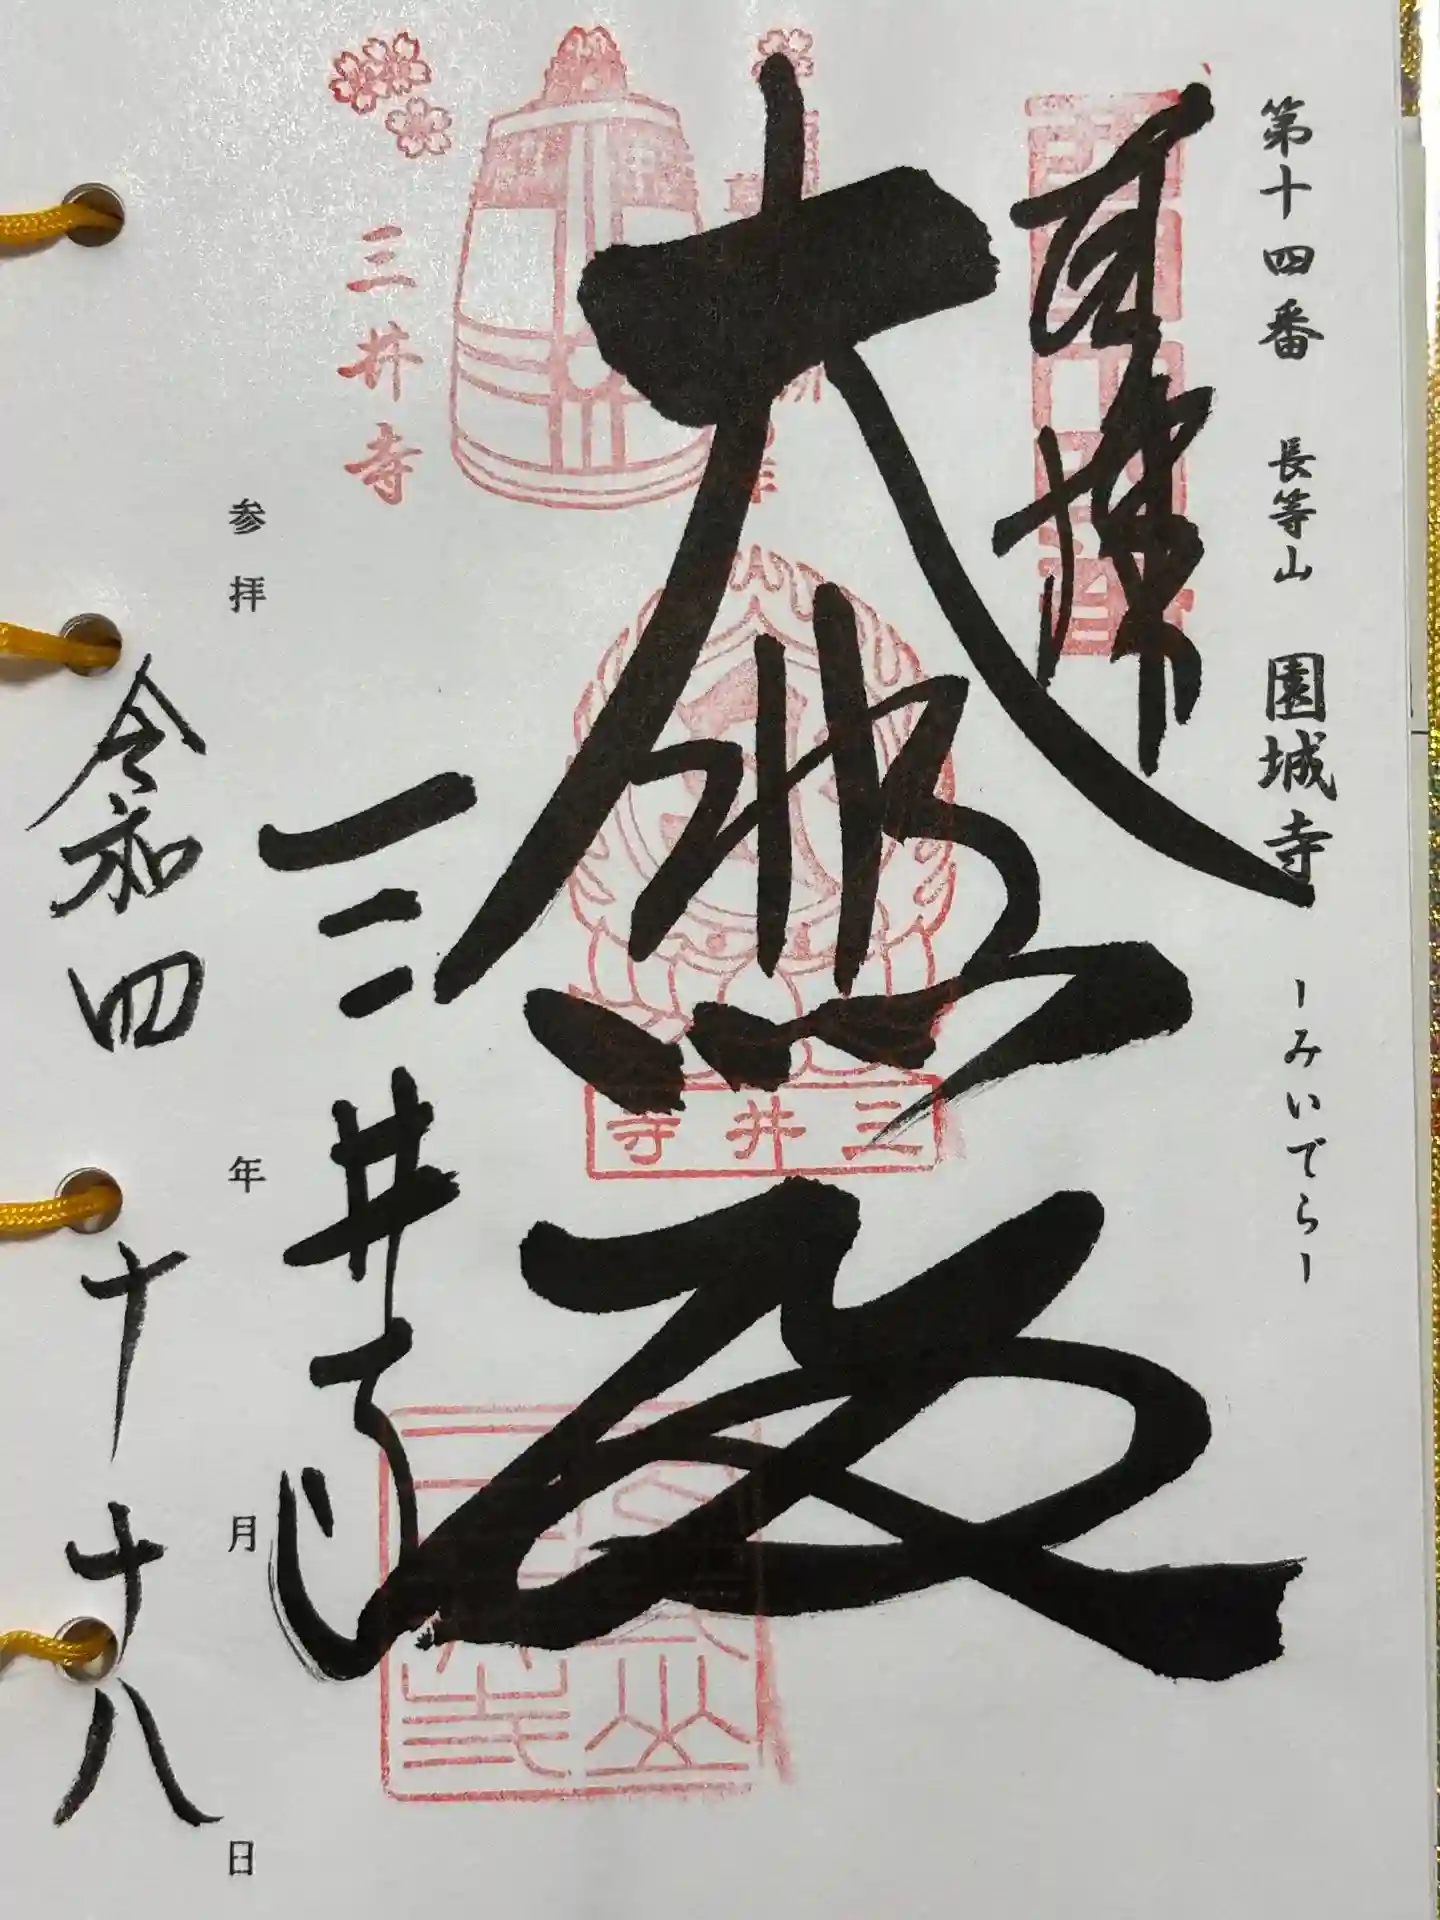 第十四番 長等山 園城寺 ーみいでらー
奉拝
大悲殿
三井寺
三井寺
三井寺
参拝 年 月 日
令和四 十 十八